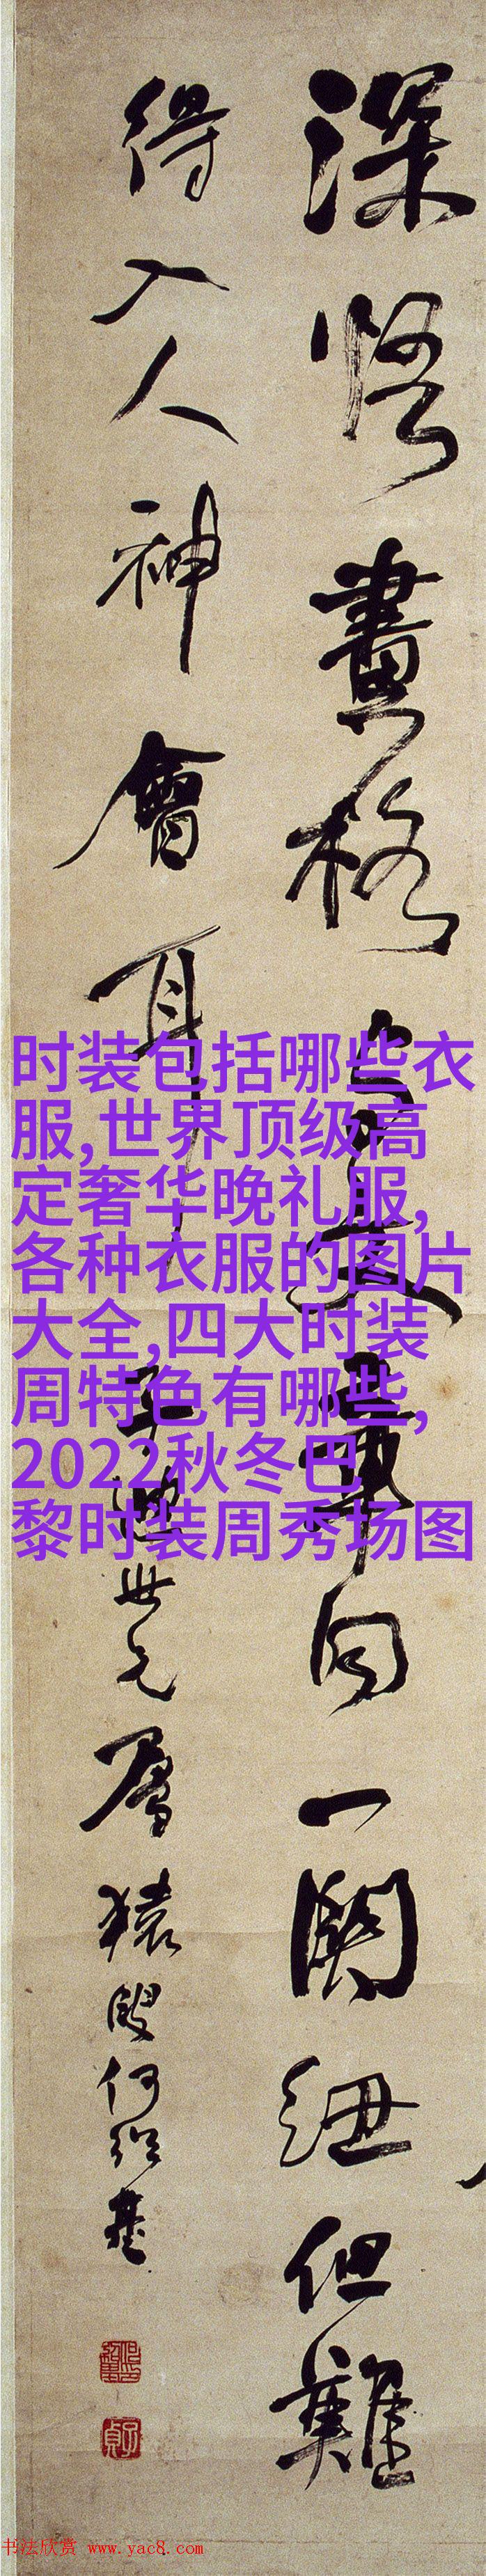 深悟畫格同一關紐但難
得入人神會耳
世兄屬
猿叟何紹基
子貞
时装包括哪些衣
服,世界顶级高
定奢华晚礼服,
各种衣服的图片
大全,四大时装
周特色有哪些,
2022秋冬巴
黎时装周秀场图
书法欣赏 www.yac8.com